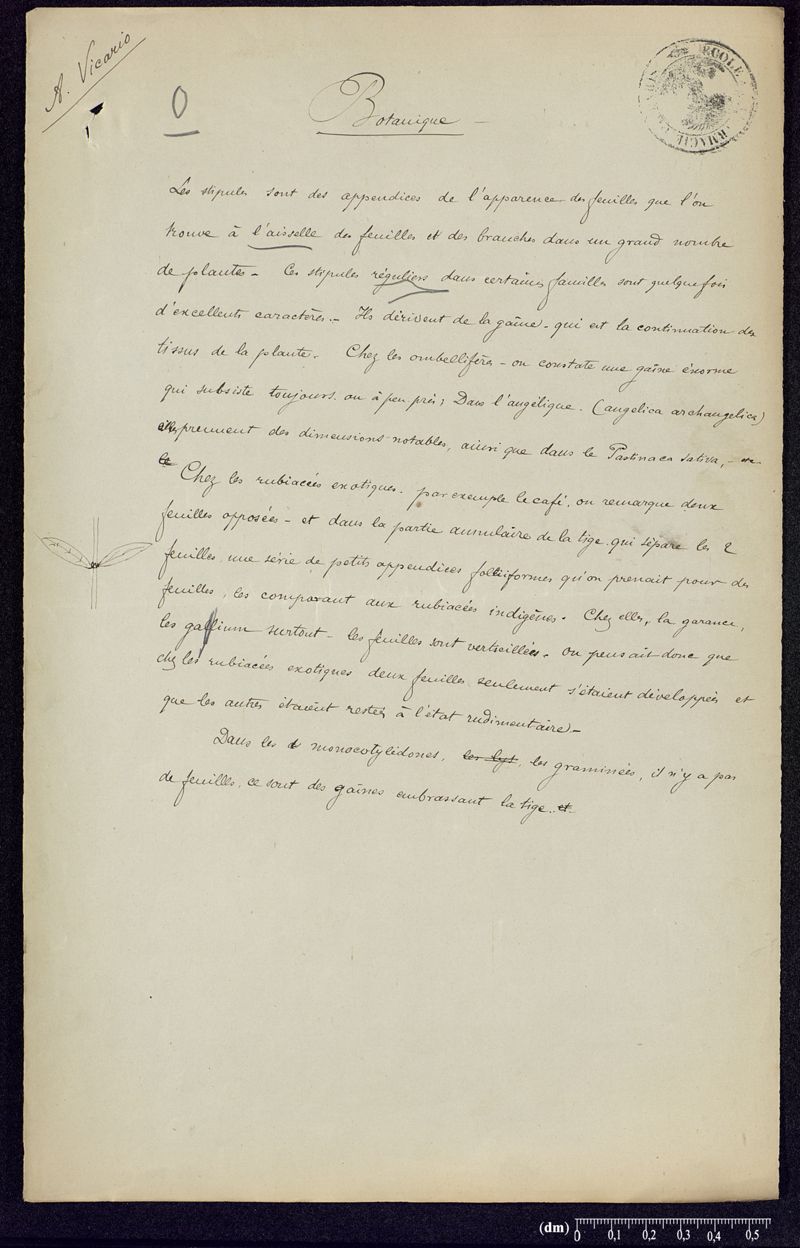 A. Vicario
0
Botanique
Les stipules sont des appendices de l'apparence des feuilles que l'on
trouve à l'aisselle des feuilles et des branches dans un grand nombre
de plantes - Ces stipules réguliers dans certaines familles sont quelquefois
d'excellents caractères. - Ils dérivent de la gaîne - qui est la continuation des
tissus de la plante. Chez les ombellifères - on constate une gaîne énorme
qui subsiste toujours ou à peu près; Dans l'angélique. (angelica archangelica)
elles prennent des dimensions notables, ainsi que dans le Pastinaca sativa, -
Chez les rubiacées exotiques. par exemple le café, on remarque deux
feuilles opposées - et dans la partie annulaire de la tige qui sépare les 2
feuilles une série de petits appendices foliiformes qu'on prenait pour des
feuilles, les comparant aux rubiacées indigènes. Chez elles, la garance,
les gallium surtout - les feuilles sont verticillées. On pensait donc que
chez les rubiacées exotiques deux feuilles seulement s'étaient développées et
que les autres étaient restées à l'état rudimentaire -
Dans les monocotylédones, les graminées, il n'y a pas
de feuilles, ce sont des gaînes embrassant la tige.
ECOLE
(dm) 0 0,1 0,2 0,3 0,4 0,5